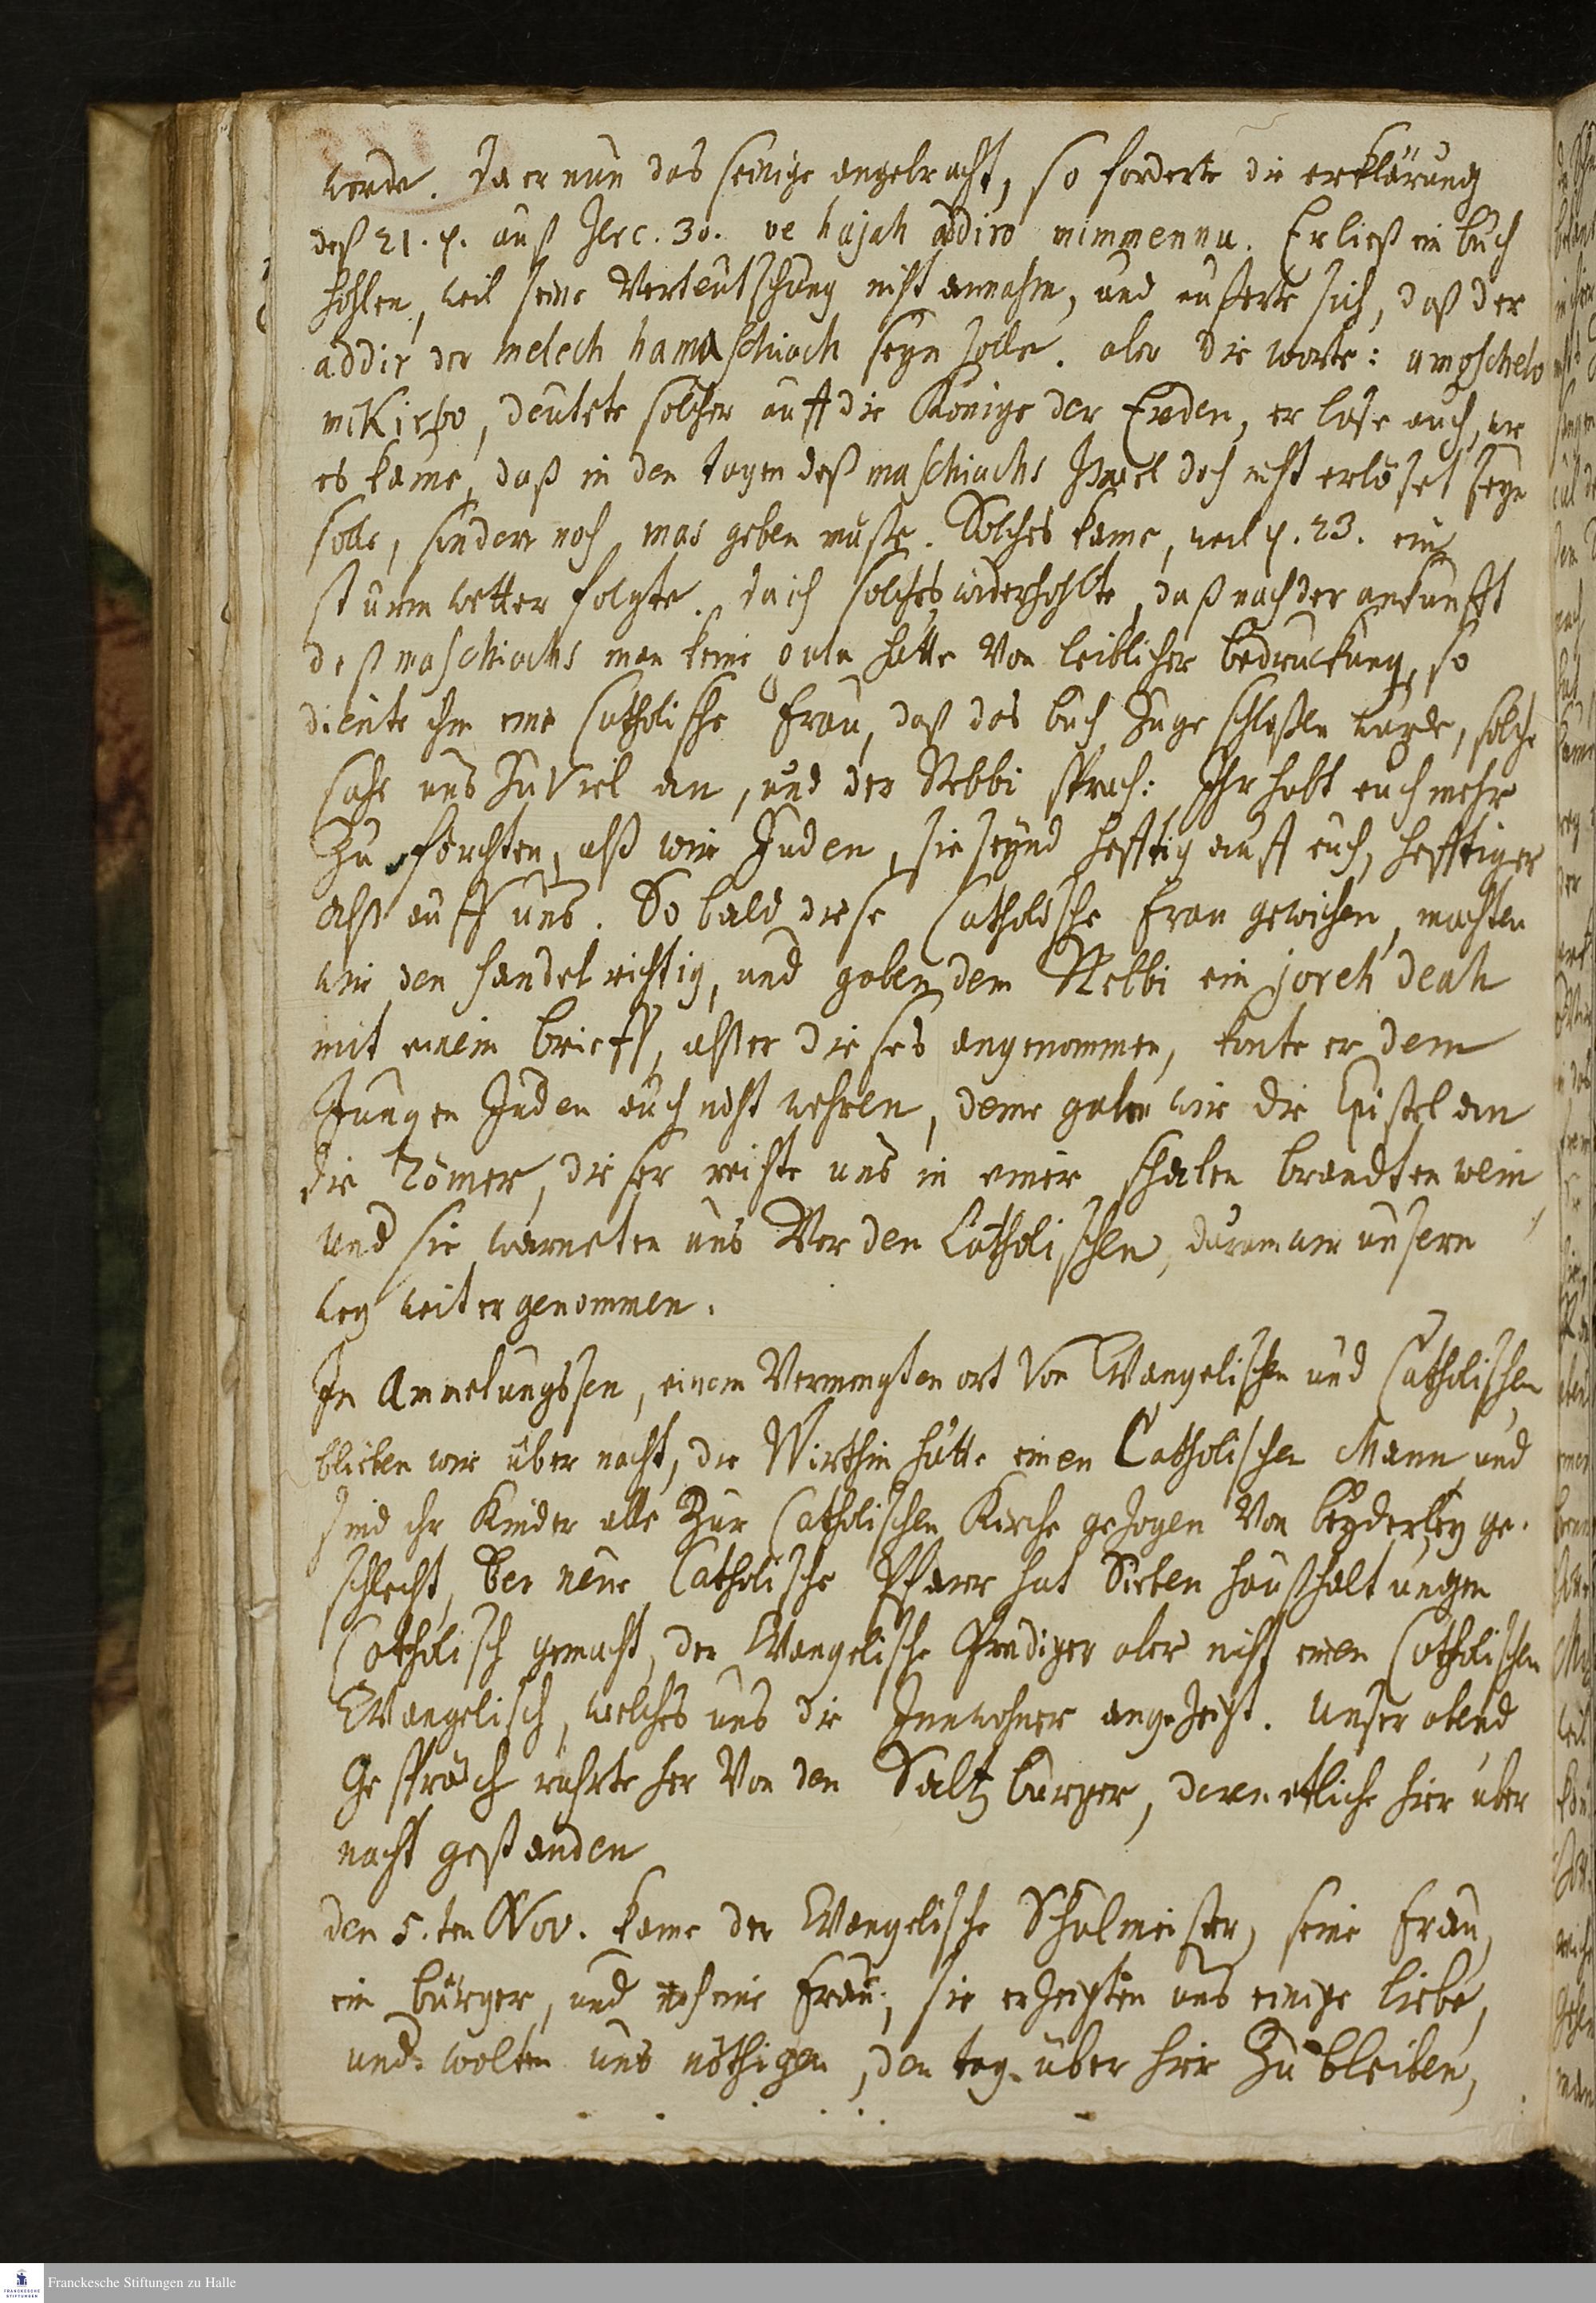 werde. Da er nun das seinige angebracht, so forderte die erklärung
deß 21. ℣. auß Jer c. 30. ve hajah addiro mimmennu. Er ließ ein buch
hohlen, weil seine Verteutschung nicht annahm, und euserte sich, daß der
addir der melech hamaschiach seyn solle. aber die worte: umoschelo
mikirbo, deutete solcher auff die Könige der Erden, er lase auch, wie
es käme, daß in den tagen deß maschiachs Israel doch nicht erlöset seyn
solle, sondern noch mas geben muste. Solches käme, weil ℣. 23. ein
sturm wetter folgte. da ich solches widerhohlte, daß nach der ankunfft
deß maschiachs man keine gula hätte von leiblicher bedruckung, so
diente ihm eine Catholische Frau, daß das buch zugeschloßen wurde, solche
sahe uns zu viel an, und der Rebbi sprach: Ihr habt euch mehr
zu förchten, alß wir Juden, sie seynd hefftig auff euch, hefftiger
alß auff uns. So bald diese Catholische Frau gewichen, machten
wir den handel richtig, und gaben dem Rebbi ein joreh deah
mit einem brieff, alß er dieses angenommen, konte er dem
Jungen Juden auch nicht wehren, deme gaben wir die Epistel an
die Römer, dieser reichte uns in einer schalen brandtenwein
und sie warneten uns Vor den Catholischen, darum wir unsern
weg weiter genommen.
In Amelungssen, einem Vermengten ort von Evangelischen und Catholischen
blieben wir über nacht, die Wirthin hatte einen Catholischen Mann und
sind ihr Kinder alle zur Catholischen Kirche gezogen von beyderley ge-
schlecht, der neue Catholische Pfarr hat Sieben haußhaltungen
Catholisch gemacht, der Evangelische Prediger aber nicht einen Catholischen
Evangelisch, welches uns die Innwohner angezeigt. Unser abend
Gespräch rührte her von den Saltzburger, deren etliche hier über
nacht gestanden
den 5.ten Nov. kame der Evangelische Schulmeister, seine Frau,
ein bürger, und noch eine Frau, sie erzeigten uns einige liebe,
und wolten uns nöthigen, den tag über hier zu bleiben,
Franckesche Stiftungen zu Halle